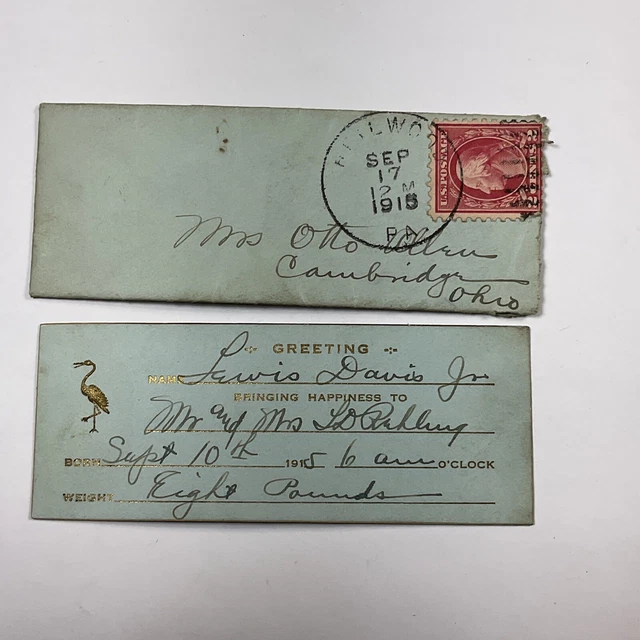 SEP
17
12 M
1915
PA
U.S. POSTAGE
Mrs Otto Allen
Cambridge
Ohio
GREETING
NAME Lewis Davis Jr
BRINGING HAPPINESS TO
Mr and Mrs L D
BORN Sept 10th 1915 6 am O'CLOCK
WEIGHT Eight Pounds